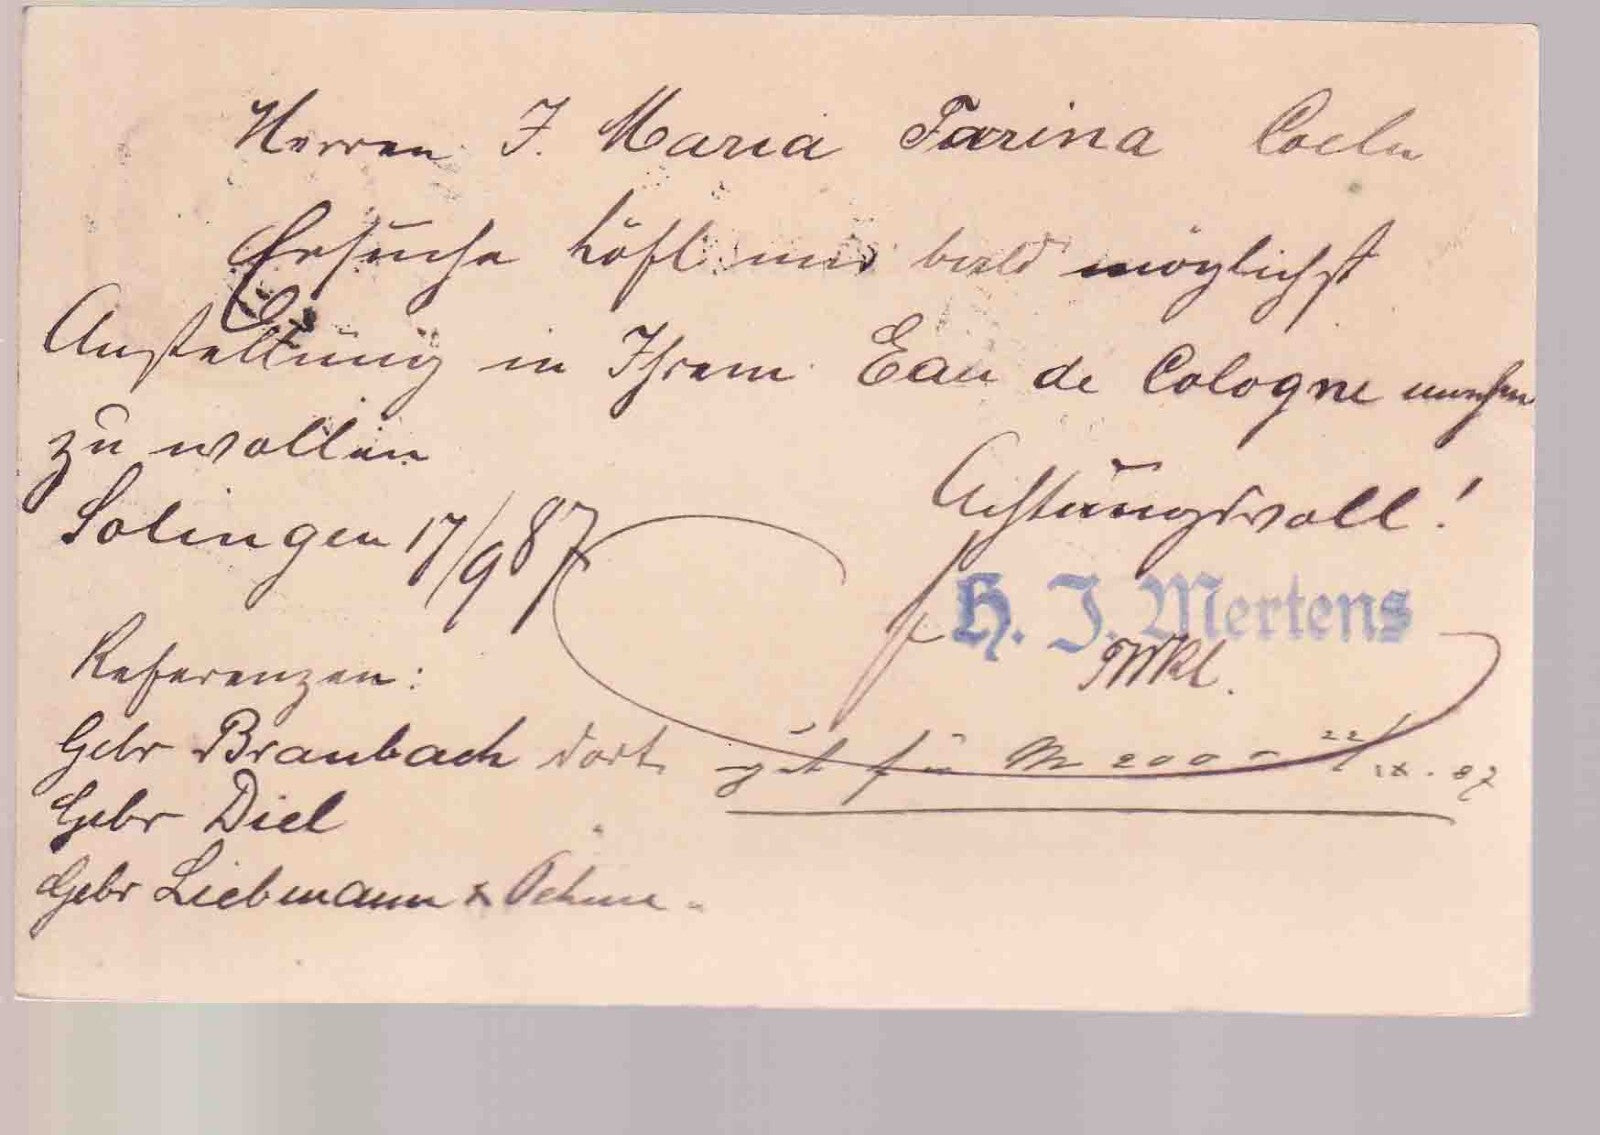 Herren J. Maria Farina Coeln
Ersuche höfl mir bald möglichst
Anstellung in Ihrem Eau de Cologne machen
zu wollen
Achtungsvoll!
Solingen 17/9 87
H. J. Mertens
Referenzen:
Gebr Braubach dort
gut für M 200 - 22/IX. 87
Gebr Diel
Gebr Liebmann & Oehme